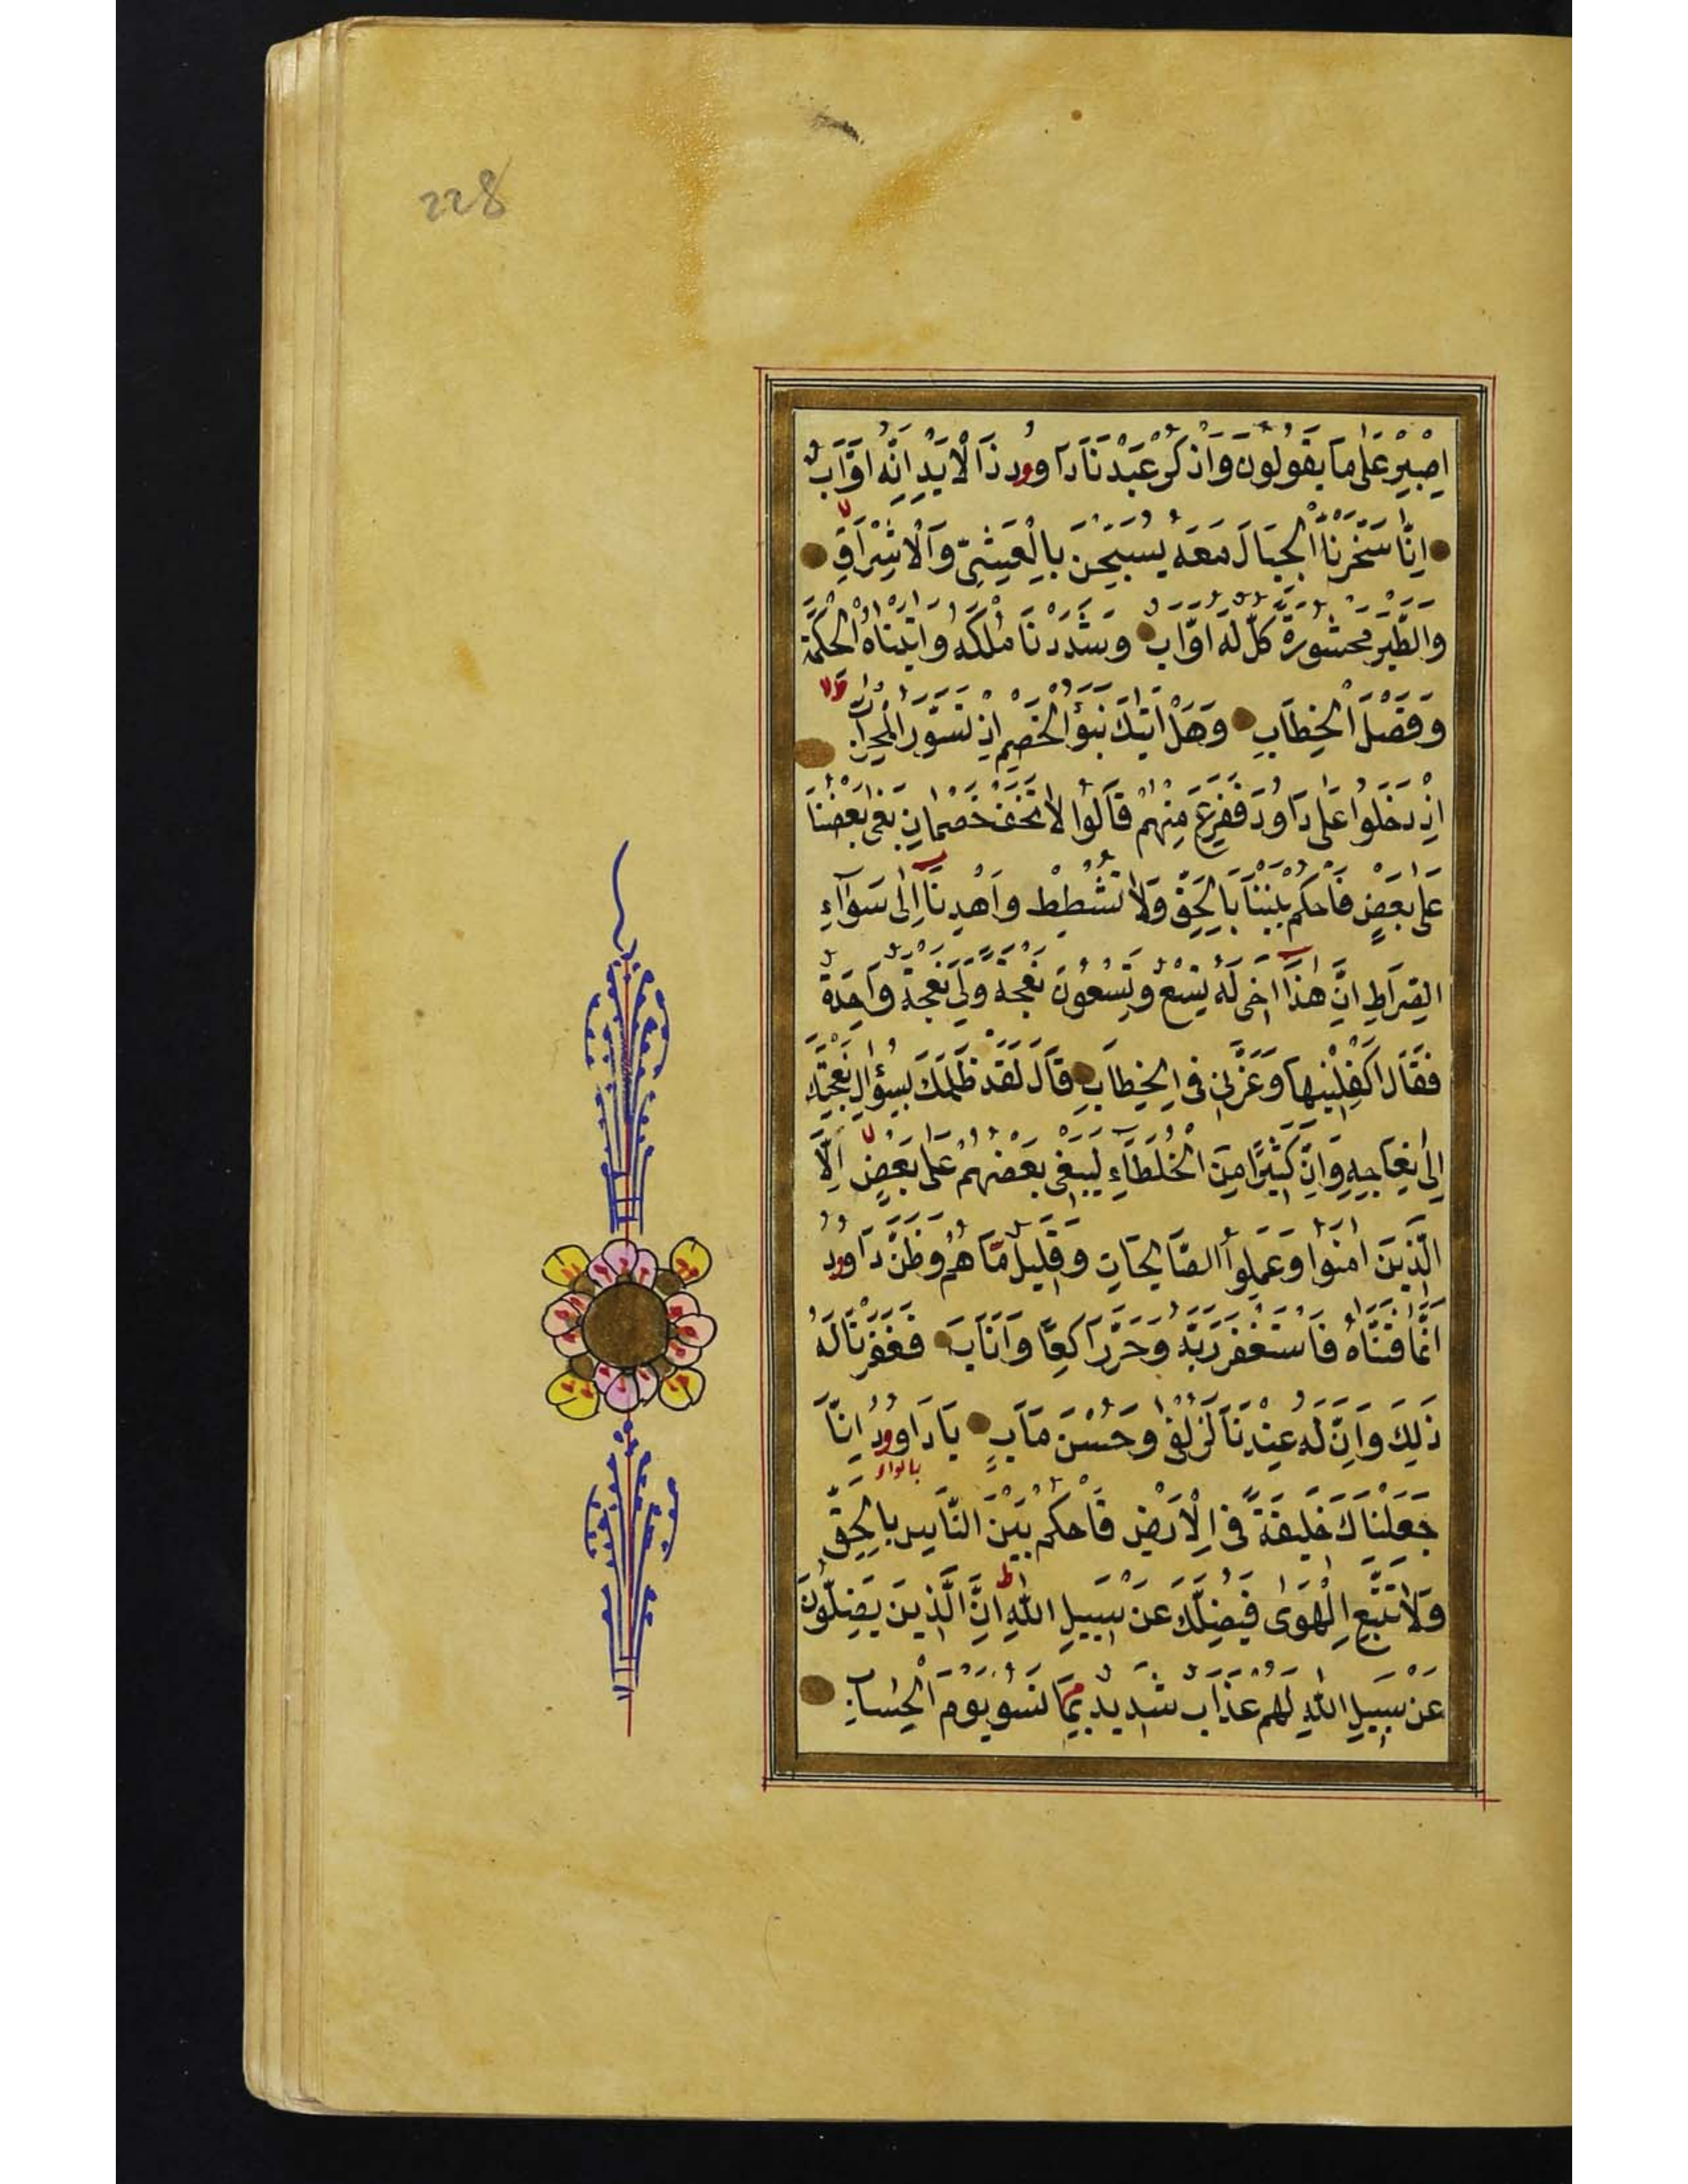 228
اِصْبِرْ عَلٰى مَا يَقُولُونَ وَاذْكُرْ عَبْدَنَا دَاوُودَ ذَا الْاَيْدِ اِنَّهُ اَوَّابٌ
اِنَّا سَخَّرْنَا الْجِبَالَ مَعَهُ يُسَبِّحْنَ بِالْعَشِيِّ وَالْاِشْرَاقِ
وَالطَّيْرَ مَحْشُورَةً كُلٌّ لَهُ اَوَّابٌ وَشَدَدْنَا مُلْكَهُ وَاٰتَيْنَاهُ الْحِكْمَةَ
وَفَصْلَ الْخِطَابِ وَهَلْ اَتٰيكَ نَبَؤُا الْخَصْمِ اِذْ تَسَوَّرُوا الْمِحْرَابَ
اِذْ دَخَلُوا عَلٰى دَاوُدَ فَفَزِعَ مِنْهُمْ قَالُوا لَا تَخَفْ خَصْمَانِ بَغٰى بَعْضُنَا
عَلٰى بَعْضٍ فَاحْكُمْ بَيْنَنَا بِالْحَقِّ وَلَا تُشْطِطْ وَاهْدِنَا اِلٰى سَوَآءِ
الصِّرَاطِ اِنَّ هٰذَا اَخِى لَهُ تِسْعٌ وَتِسْعُونَ نَعْجَةً وَلِىَ نَعْجَةٌ وَاحِدَةٌ
فَقَالَ اَكْفِلْنِيهَا وَعَزَّنِى فِى الْخِطَابِ قَالَ لَقَدْ ظَلَمَكَ بِسُؤَالِ نَعْجَتِكَ
اِلٰى نِعَاجِهِ وَاِنَّ كَثِيرًا مِنَ الْخُلَطَآءِ لَيَبْغِى بَعْضُهُمْ عَلٰى بَعْضٍ اِلَّا
الَّذِينَ اٰمَنُوا وَعَمِلُوا الصَّالِحَاتِ وَقَلِيلٌ مَّا هُمْ وَظَنَّ دَاوُودُ
اَنَّمَا فَتَنَّاهُ فَاسْتَغْفَرَ رَبَّهُ وَخَرَّ رَاكِعًا وَاَنَابَ فَغَفَرْنَا لَهُ
ذٰلِكَ وَاِنَّ لَهُ عِنْدَنَا لَزُلْفٰى وَحُسْنَ مَاٰبٍ يَا دَاوُودُ اِنَّا
بالواو
جَعَلْنَاكَ خَلِيفَةً فِى الْاَرْضِ فَاحْكُمْ بَيْنَ النَّاسِ بِالْحَقِّ
وَلَا تَتَّبِعِ الْهَوٰى فَيُضِلَّكَ عَنْ سَبِيلِ اللّٰهِ اِنَّ الَّذِينَ يَضِلُّونَ
عَنْ سَبِيلِ اللّٰهِ لَهُمْ عَذَابٌ شَدِيدٌ بِمَا نَسُو يَوْمَ الْحِسَابِ